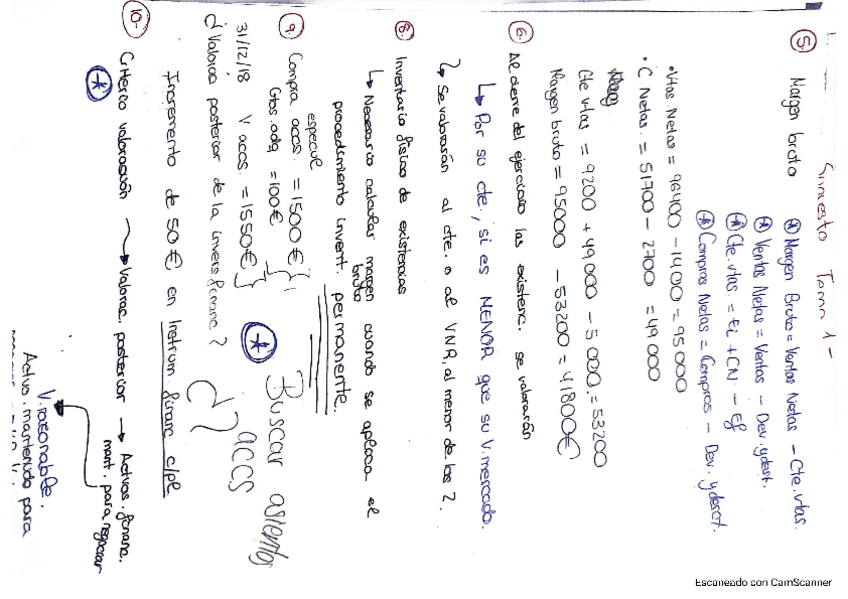 Tema 1-
5. Margen bruto
* Margen Bruto = Ventas Netas - Cte. vtas.
* Ventas Netas = Ventas - Dev. y dest.
* Cte. vtas. = Ei + CN - Ef
* Compras Netas = Compras - Dev. y desct.
• Vtas Netas = 96400 - 1400 = 95000
• C Netas. = 51700 - 2700 = 49000
Cte vtas = 9200 + 49000 - 5000 = 53200
Margen bruto = 95000 - 53200 = 41800€
6. Al cierre del ejercicio las existenc. se valorarán
↳ Por su cte., si es MENOR que su V. mercado.
↳ Se valorarán al cte. o al VNR, al menor de los 2.
8. Inventario físico de existencias
↳ Necesario calcular margen bruto cuando se aplica el
procedimiento invent. permanente.
9. Compra accs. = 1500€
especul
Gtos. adq = 100€
31/12/18 V accs. = 1550€
* Buscar asientos
accs
¿?
¿Valorac posterior de la invers financ?
Incremento de 50€ en Instrum. financ c/pl
10. Criterio valoración → Valorac. posterior → Activos. financ.
mant. para negociar
*
V. razonable.
Activo. mantenido para
Escaneado con CamScanner